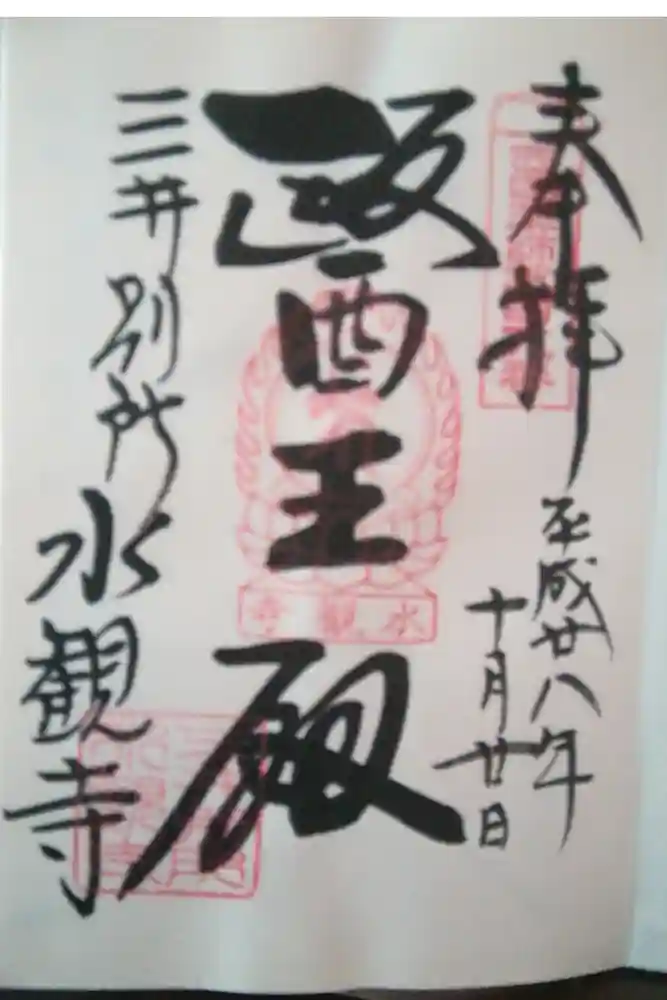 奉拝
平成廿八年
十月廿日
醫王殿
水観寺
三井別所
水観寺